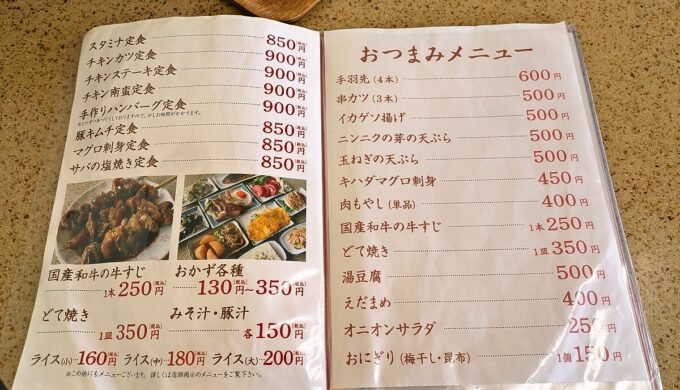 スタミナ定食 850円(税込)
チキンカツ定食 900円(税込)
チキンステーキ定食 900円(税込)
チキン南蛮定食 900円(税込)
手作りハンバーグ定食 900円(税込)
豚キムチ定食 850円(税込)
マグロ刺身定食 850円(税込)
サバの塩焼き定食 850円(税込)
国産和牛の牛すじ
1本 250円(税込)
おかず各種
130円(税込)〜350円(税込)
どて焼き
1皿 350円(税込)
みそ汁・豚汁
各 150円(税込)
ライス(小) 160円(税込) ライス(中) 180円(税込) ライス(大) 200円(税込)
※この他にもメニューございます。詳しくは店頭掲示のメニューをご覧下さい。
おつまみメニュー
手羽先(4本) 600円
串カツ(3本) 500円
イカゲソ揚げ 500円
ニンニクの芽の天ぷら 500円
玉ねぎの天ぷら 500円
キハダマグロ刺身 450円
肉もやし(単品) 400円
国産和牛の牛すじ 1本 250円
どて焼き 1皿 350円
湯豆腐 500円
えだまめ 400円
オニオンサラダ 250円
おにぎり(梅干し・昆布) 1個 150円